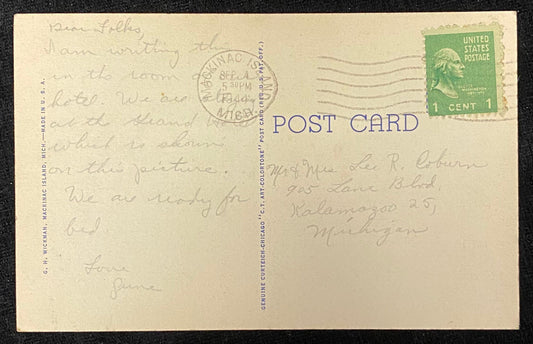 Dear Folks,
I am writing this
in the room
hotel. We are
at the
which is shown
on this picture.
We are ready for
bed
Love
June
G. H. WICKMAN, MACKINAC ISLAND, MICH.—MADE IN U. S. A.
MACKINAC ISLAND
5 30 PM
MICH.
UNITED
STATES
POSTAGE
WASHINGTON
1 CENT 1
POST CARD
GENUINE CURTEICH-CHICAGO "C. T. ART-COLORTONE" POST CARD (REG. U. S. PAT. OFF.)
Mr & Mrs. Lee R. Coburn
905 Lane Blvd,
Kalamazoo 25,
Michigan